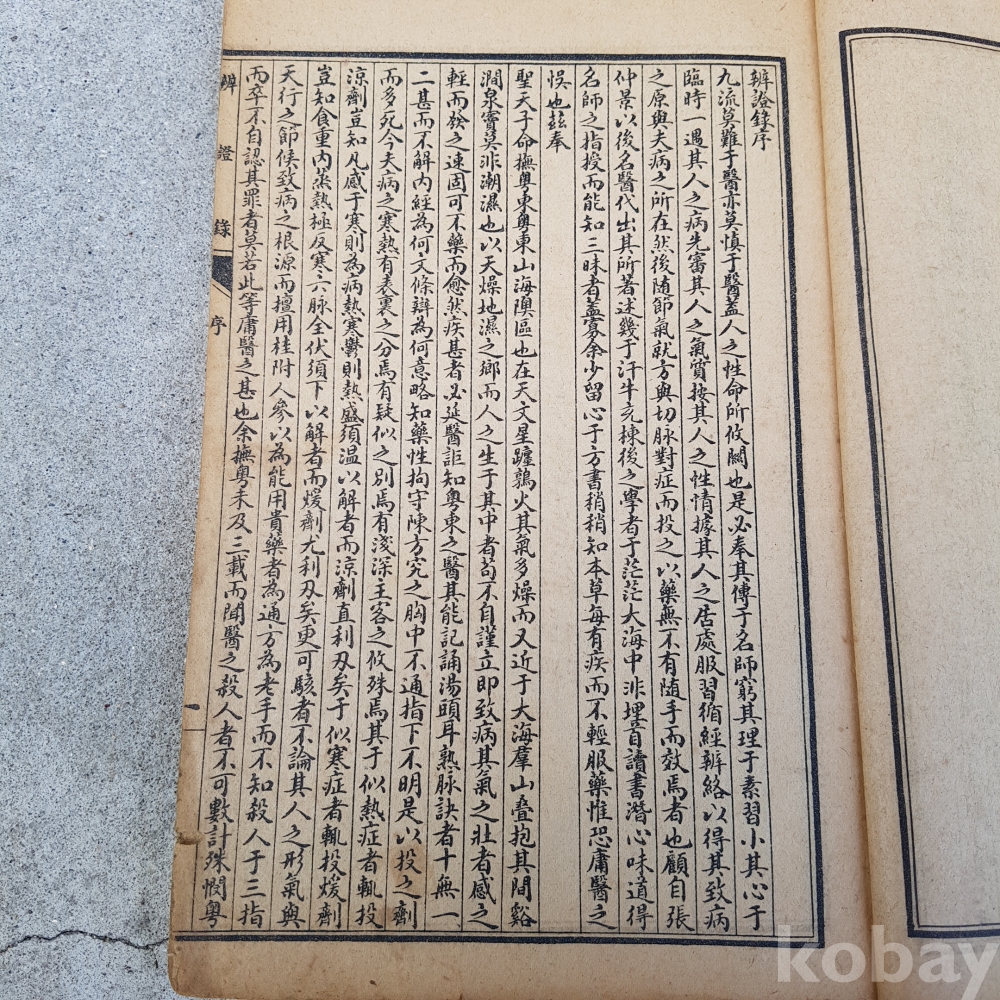 辨證錄序
九流莫難于醫亦莫慎于醫蓋人之性命所攸關也是必奉其傳于名師窮其理于素習小其心于
臨時一遇其人之病先審其人之氣質按其人之性情據其人之居處服習循經辨絡以得其致病
之原與夫病之所在然後随節氣就方輿切脉對症而投之以藥無不有随手而效焉者也顧自張
仲景以後名醫代出其所著述幾于汗牛充棟後之學者于茫茫大海中非埋首讀書潛心味道得
名師之指授而能知三昧者蓋寡余少留心于方書稍稍知本草每有疾而不輕服藥惟恐庸醫之
悞也兹奉
聖天子命撫粵東粵東山海隩區也在天文星躔鶉火其氣多燥而又近于大海羣山叠抱其間谿
澗泉竇莫非潮濕也以天燥地濕之鄉而人之生于其中者苟不自謹立即致病其氣之壯者感之
輕而發之速固可不藥而愈然疾甚者必延醫詎知粵東之醫其能記誦湯頭耳熟脉訣者十無一
二甚而不解內經為何文條辯為何意略知藥性拘守陳方究之胸中不通指下不明是以投之劑
而多死今夫病之寒熱有表裏之分焉有疑似之別焉有淺深主客之攸殊焉其于似熱症者輒投
凉劑豈知凡感于寒則為病熱寒鬱則熱盛須温以解者而凉劑直利刃矣于似寒症者輒投煖劑
豈知食重內蒸熱極反寒六脉全伏須下以解者而煖劑尤利刃矣更可駭者不論其人之形氣與
天行之節候致病之根源而擅用桂附人參以為能用貴藥者為通方為老手而不知殺人于三指
而卒不自認其罪者莫若此等庸醫之甚也余撫粵未及三載而聞醫之殺人者不可數計殊憫粵
辨證錄 序 一
kobay